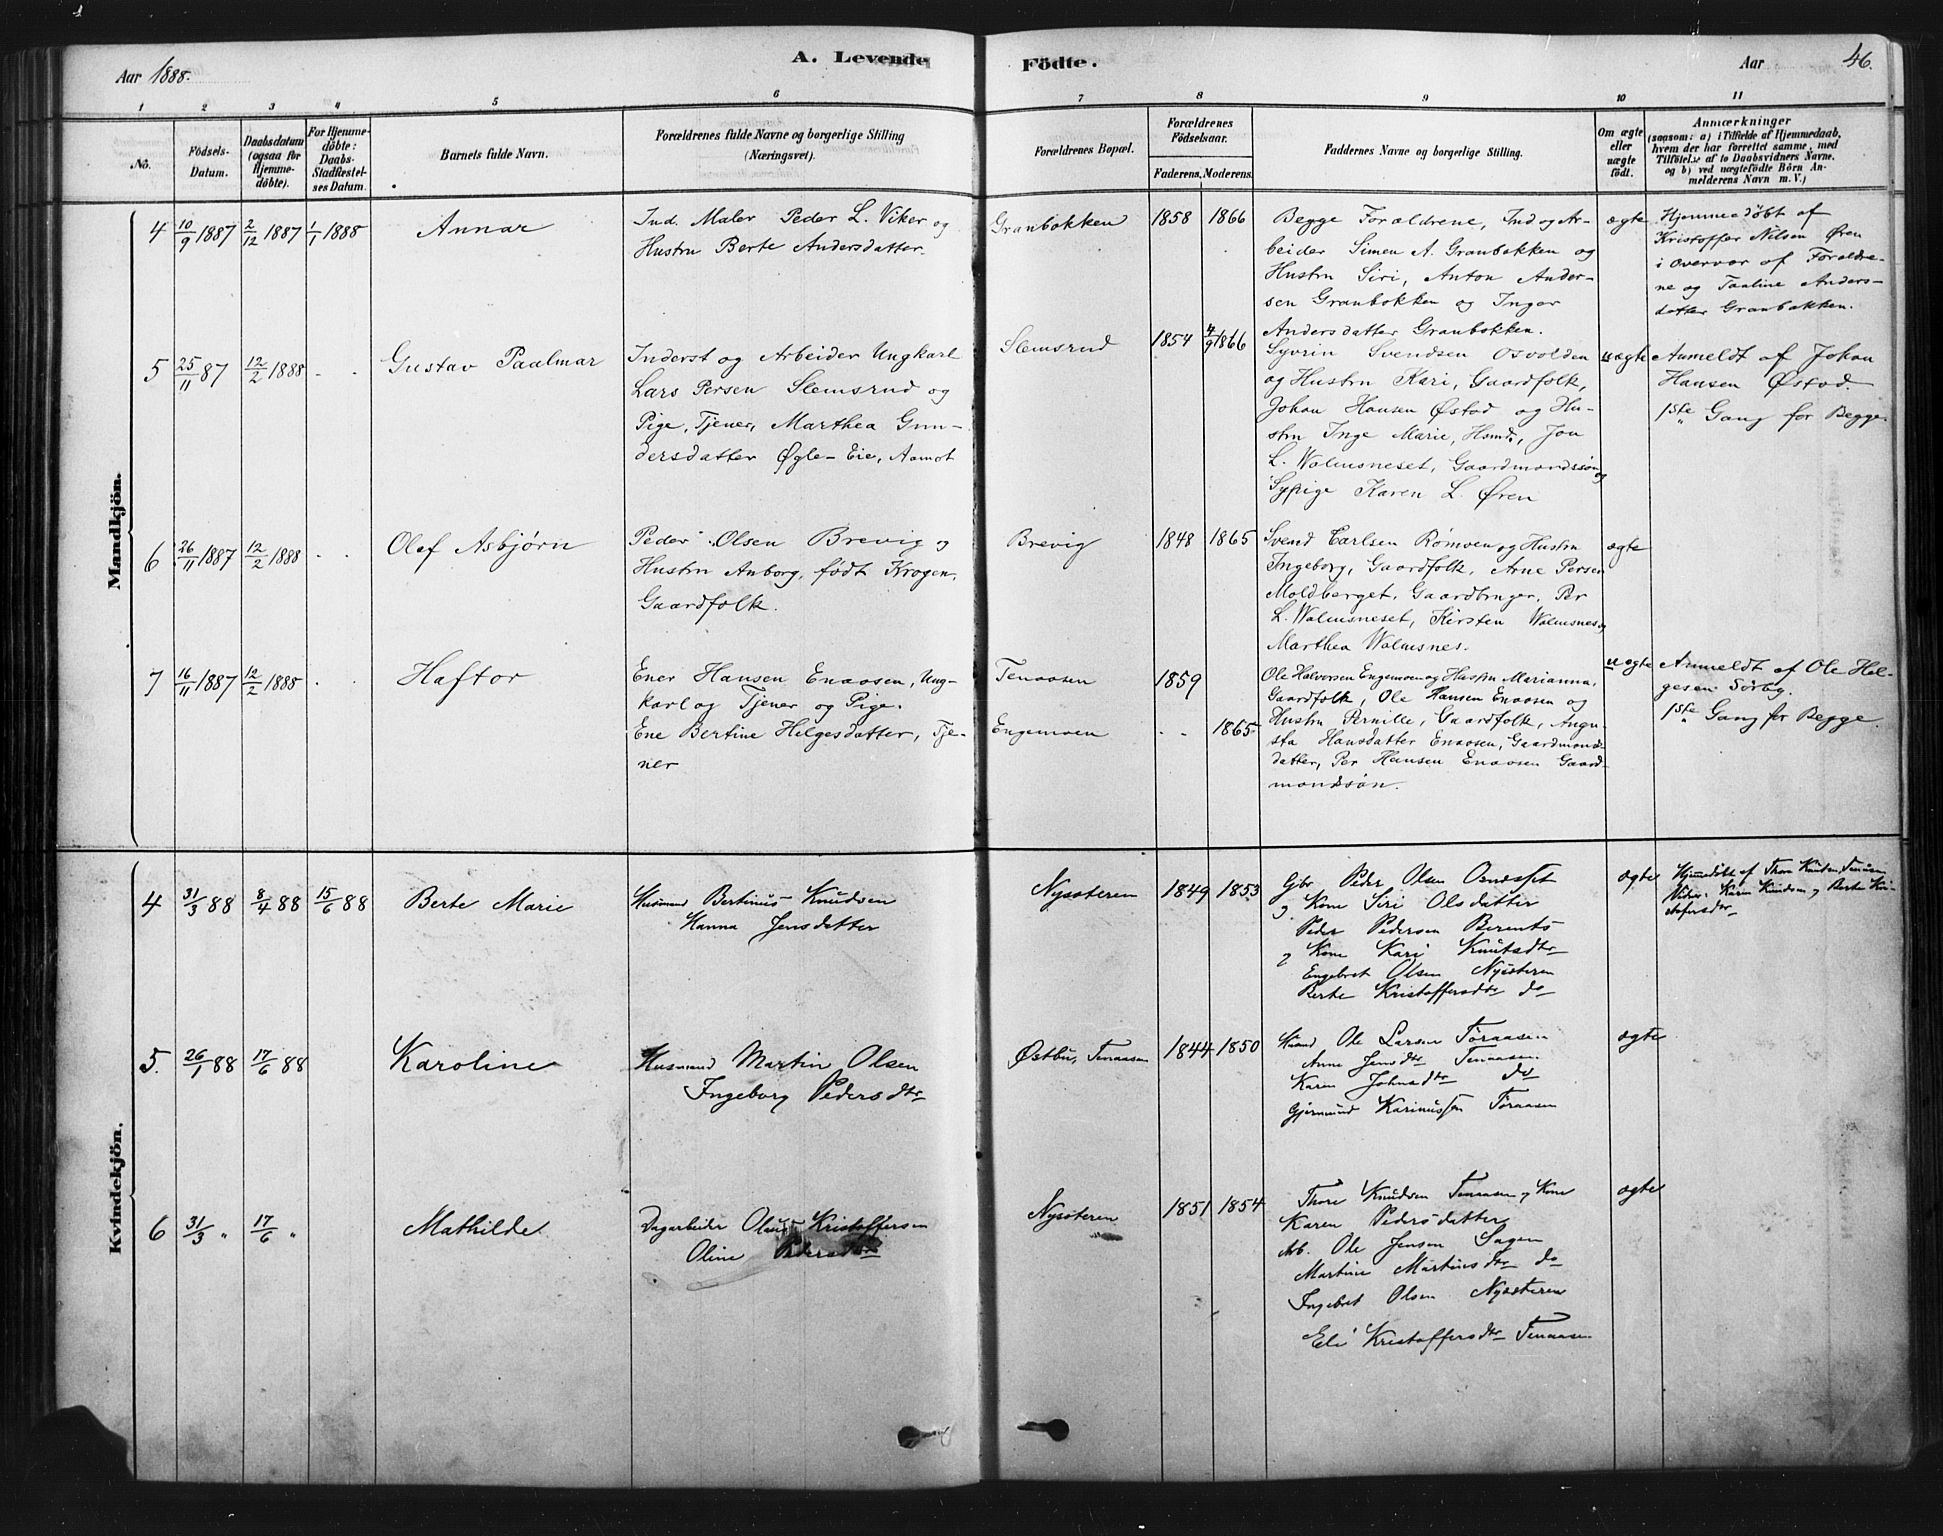 Aar 1888.
A. Levende Födte.
Aar
46.
1 2 3 4 5 6 7 8 9 10 11
No.
Födsels-Datum.
Daabsdatum (ogsaa for Hjemme-döbte).
For Hjemme-döbte: Daabs-Stadfæstel-ses Datum.
Barnets fulde Navn.
Forældrenes fulde Navne og borgerlige Stilling (Næringsvei).
Forældrenes Bopæl.
Forældrenes Födselsaar.
Faderens. Moderens.
Faddernes Navne og borgerlige Stilling.
Om ægte eller uægte födt.
Anmærkninger
(saasom: a) i Tilfælde af Hjemmedaab, hvem der har forrettet samme, med Tilföielse af to Daabsvidners Navne, og b) ved uægtefödte Börn An-melderens Navn m. V.)
Mandkjön.
4 10/9 1887 2/12 1887 1/1 1888 Annar
Ind. Maler Peder L. Viker og
Hustru Berte Andersdatter.
Granbakken 1858 1866
Begge Forældrene, Ind og Ar-
beider Simen A. Granbakken og
Hustru Siri, Anton Ander-
sen Granbakken og Inger
Andersdatter Granbakken.
ægte
Hjemmedøbt af
Kristoffer Nilsen Øren
i overvær af Foraldre-
ne og Taaline Anders-
datter Granbakken.
5 25/11 87 12/2 1888 Gustav Paalmar
Inderst og Arbeider Ungkarl
Lars Persen Slemsrud og
Pige, Tjener, Marthea Gun-
dersdatter Øgle-Eie, Aamot
Slemsrud 1854 4/9 1866
Syvrin Svendsen Osvolden
og Hustru Kari, Gaardfolk,
Johan Hansen Østad og Hu-
stru Inge Marie, Hsmd., Jon
L. Walmsneset, Gaardmandssøn og
Sypige Karen L. Øren
uægte
Anmeldt af Johan
Hansen Østad.
1ste Gang for Begge.
6 26/11 1887 12/2 1888 Olaf Asbjørn
Peder Olsen Brevig og
Hustru Anborg, født Krogen,
Gaardfolk.
Brevig 1848 1865
Svend Carlsen Rømoen og Hustru
Ingeborg, Gaardfolk, Arne Persen
Moldberget, Gaardbruger, Per
L. Walmsneset, Kirsten Walmsnes og
Marthea Walmsnes.
ægte
7 16/11 1887 12/2 1888 Haftor
Ener Hansen Enaasen, Ung-
karl og Tjener og Pige.
Ene Bertine Helgesdatter, Tje-
ner
Tenaasen 1859
Engemoen 1865
Ole Halvorsen Engemoen og Hustru Marianna,
Gaardfolk, Ole Hansen Enaasen og
Hustru Pernille, Gaardfolk, Augu-
sta Hansdatter Enaasen, Gaardmands-
datter, Per Hansen Enaasen Gaard-
mandssøn.
uægte
Anmeldt af Ole Hel-
gesen Sørby.
1ste Gang for Begge.
Kvindekjön.
4 31/3 88 8/4 88 15/6 88 Berte Marie
Husmand Bertinus Knudsen
Hanna Jensdatter
Nysæteren 1849 1853
Gbr. Peder Olsen
og Kone Siri Olsdatter
Peder Pedersen Berents
og Kone Kari Knutsdtr
Engebret Olsen Nysæteren
Berte Kristoffersdtr do
ægte
Hjemmedøbt af Thore Knudsen Tenaasen
Vidner: Karen Knudsen og Berte Kri-
stofersdtr
5. 26/1 88 17/6 88 Karoline
Husmand Martin Olsen
Ingeborg Pedersdtr
Østbu, Tenaasen 1844 1850
Husmd Ole Larsen Toraasen
Anne Jensdtr Tenaasen
Karen Johnsdtr do
Gjermund Karinussen Toraasen
ægte
6 31/3 " 17/6 " Mathilde
Dagarbeider Olaus Kristoffersen
Oline Pedersdtr
Nysæteren 1851 1854
Thore Knudsen Tenaasen og Kone
Karen Pedersdatter
Arb. Ole Jensen Sagen
Martine Martinsdtr do
Ingebret Olsen Nysæteren
Eli Kristoffersdtr Tenaasen
ægte